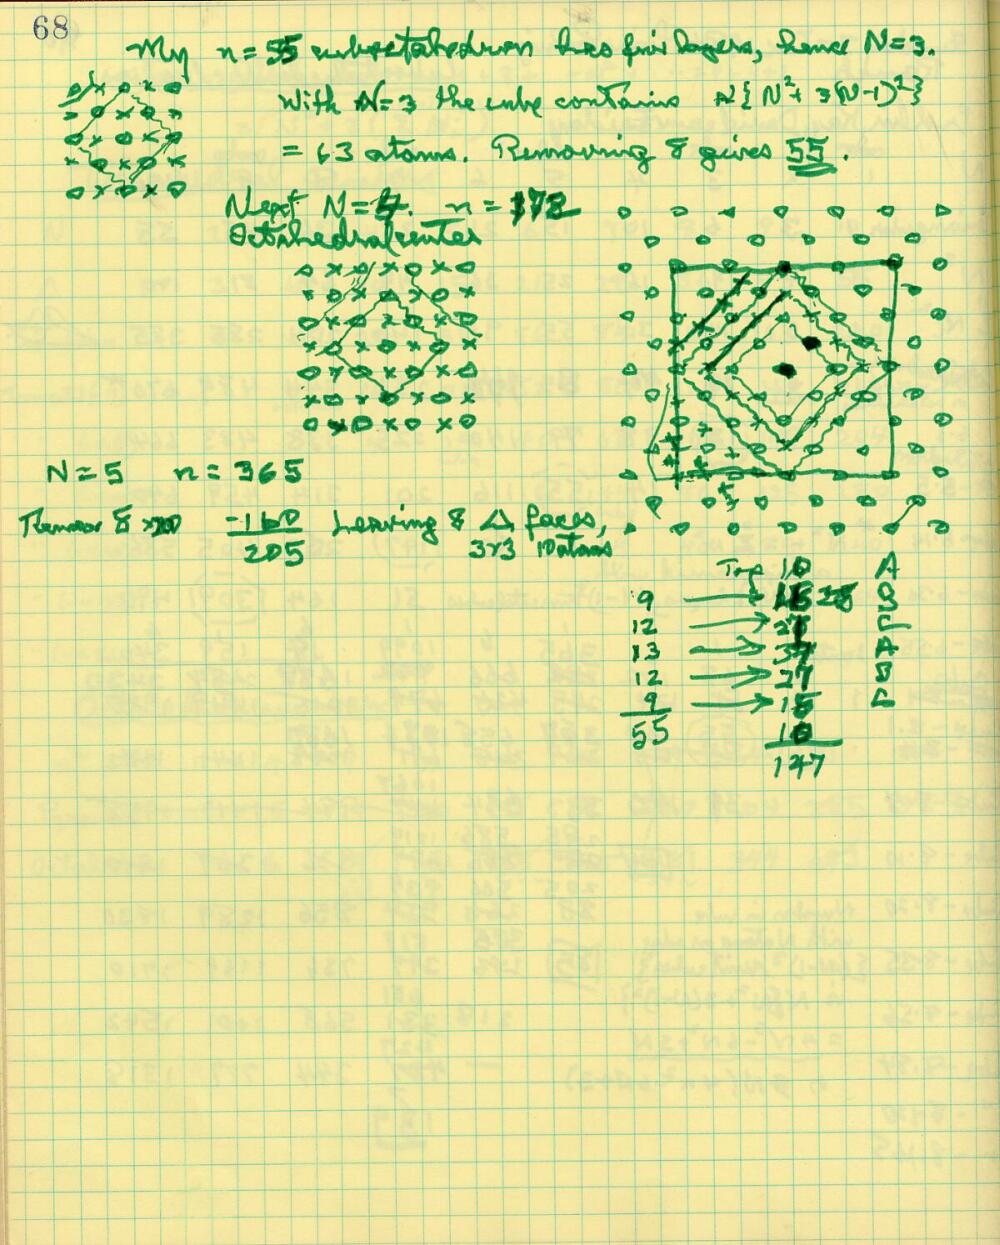 68
My n=55 cuboctahedron has five layers, hence N=3.
With N=3 the cube contains N{N²+3(N-1)²}
= 63 atoms. Removing 8 gives 55.
Next N=4. n=172
Octahedral center
N=5 n=365
Remove 8 × 20 -160 Leaving 8 △ faces,
205 3x3 10 atoms
Top 10 A
9 → 28 B
12 → 27 C
13 → 37 A
12 → 27 B
9 → 18 C
55 10
147